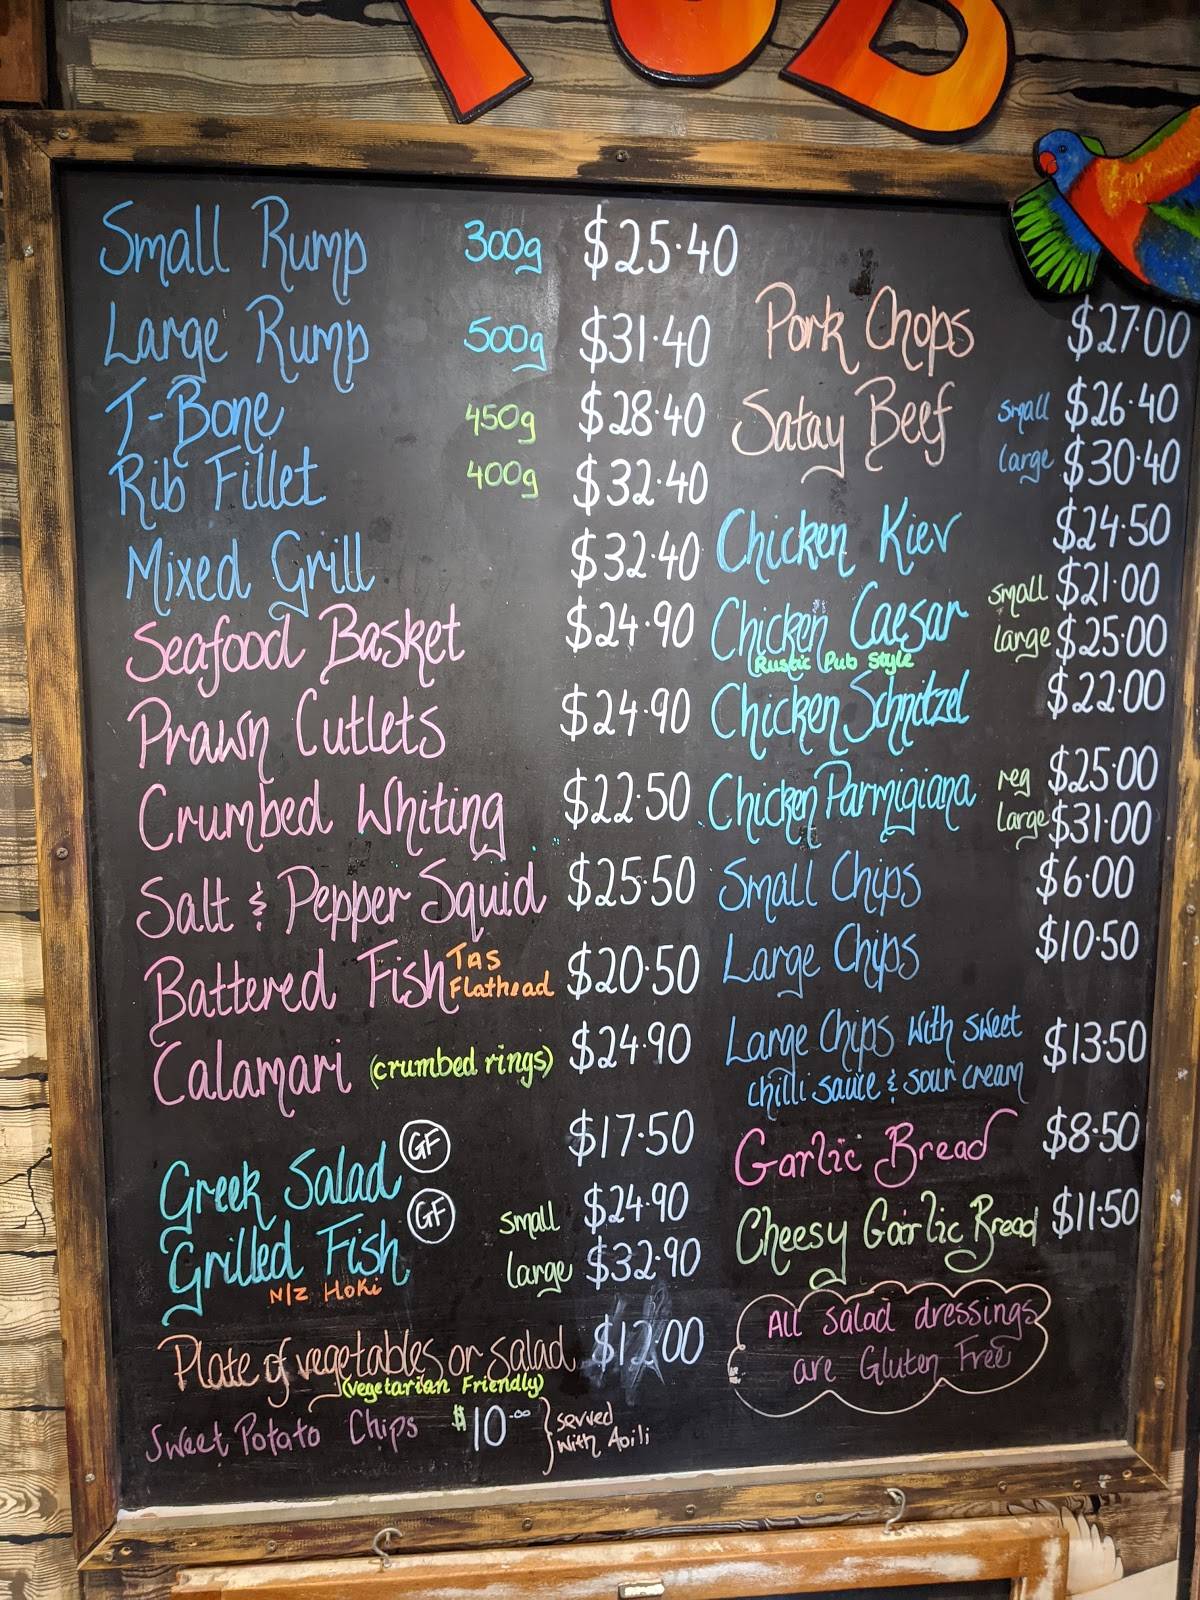 PUB
Small Rump 300g $25.40
Large Rump 500g $31.40
T-Bone 450g $28.40
Rib Fillet 400g $32.40
Mixed Grill $32.40
Seafood Basket $24.90
Prawn Cutlets $24.90
Crumbed Whiting $22.50
Salt & Pepper Squid $25.50
Battered Fish Tas Flathead $20.50
Calamari (crumbed rings) $24.90
Greek Salad GF $17.50
Grilled Fish GF small $24.90
large $32.90
N/Z Hoki
Plate of vegetables or salad $12.00
(vegetarian Friendly)
Sweet Potato Chips $10.00 } served
with Aoili
Pork Chops $27.00
Satay Beef small $26.40
large $30.40
Chicken Kiev $24.50
Chicken Caesar small $21.00
large $25.00
Rustic Pub Style
Chicken Schnitzel $22.00
Chicken Parmigiana reg $25.00
large $31.00
Small Chips $6.00
Large Chips $10.50
Large Chips with sweet $13.50
chilli sauce & sour cream
Garlic Bread $8.50
Cheesy Garlic Bread $11.50
All salad dressings
are Gluten Free